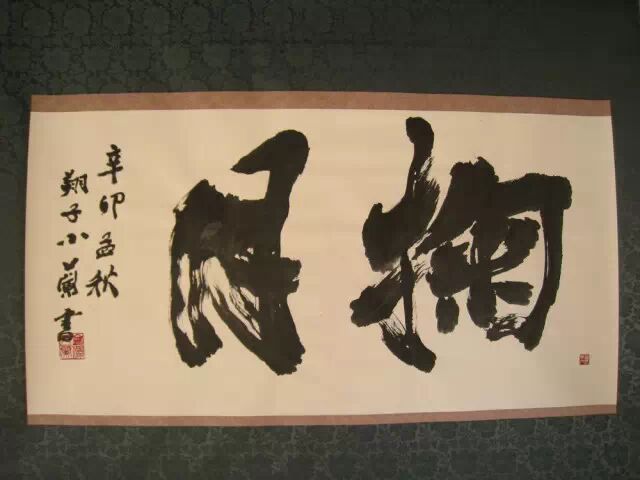 掬月
辛卯孟秋
翔子小蘭書